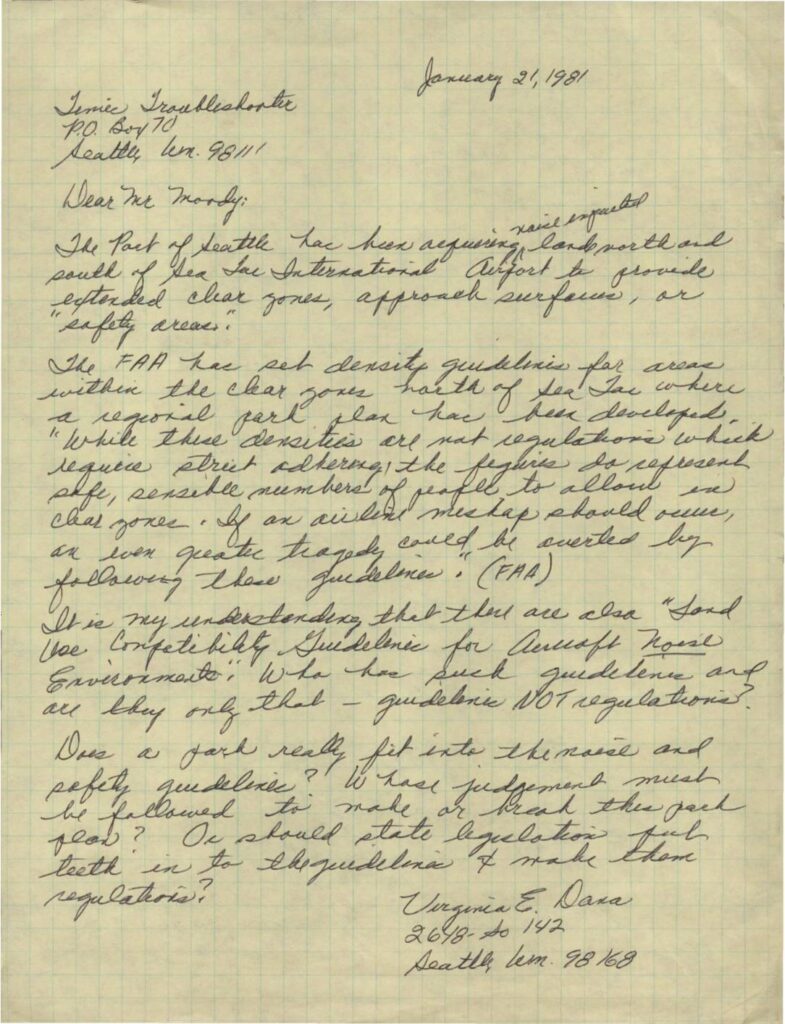 January 21, 1981
Times Troubleshooter
P.O. Box 70
Seattle, Wn. 98111
Dear Mr Moody:
noise impacted
The Port of Seattle has been acquiring land north and
south of Sea Tac International Airport to provide
extended clear zones, approach surfaces, or
"safety areas".
The FAA has set density guidelines for areas
within the clear zones north of Sea Tac where
a regional park plan has been developed.
"While these densities are not regulations which
require strict adhering, the figures do represent
safe, sensible numbers of people to allow in
clear zones. If an airline mishap should occur,
an even greater tragedy could be averted by
following these guidelines." (FAA)
It is my understanding that there are also "Land
Use Compatibility Guidelines for Aircraft Noise
Environments". Who has such guidelines and
are they only that - guidelines NOT regulations?
Does a park really fit into the noise and
safety guidelines? Whose judgement must
be followed to make or break this park
plan? Or should state legislation put
teeth in to the guidelines & make them
regulations?
Virginia E. Dana
2648- So 142
Seattle, Wn. 98168